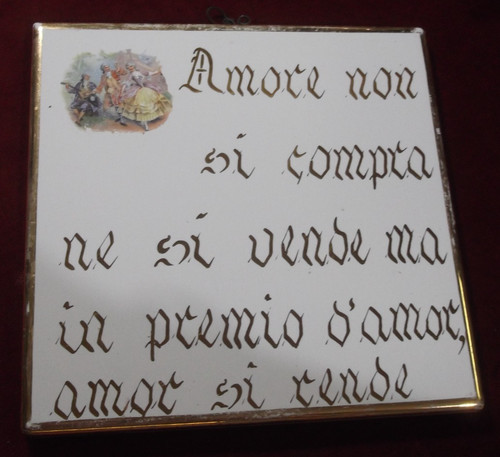 Amore non
si compra
ne si vende ma
in premio d'amor,
amor si rende